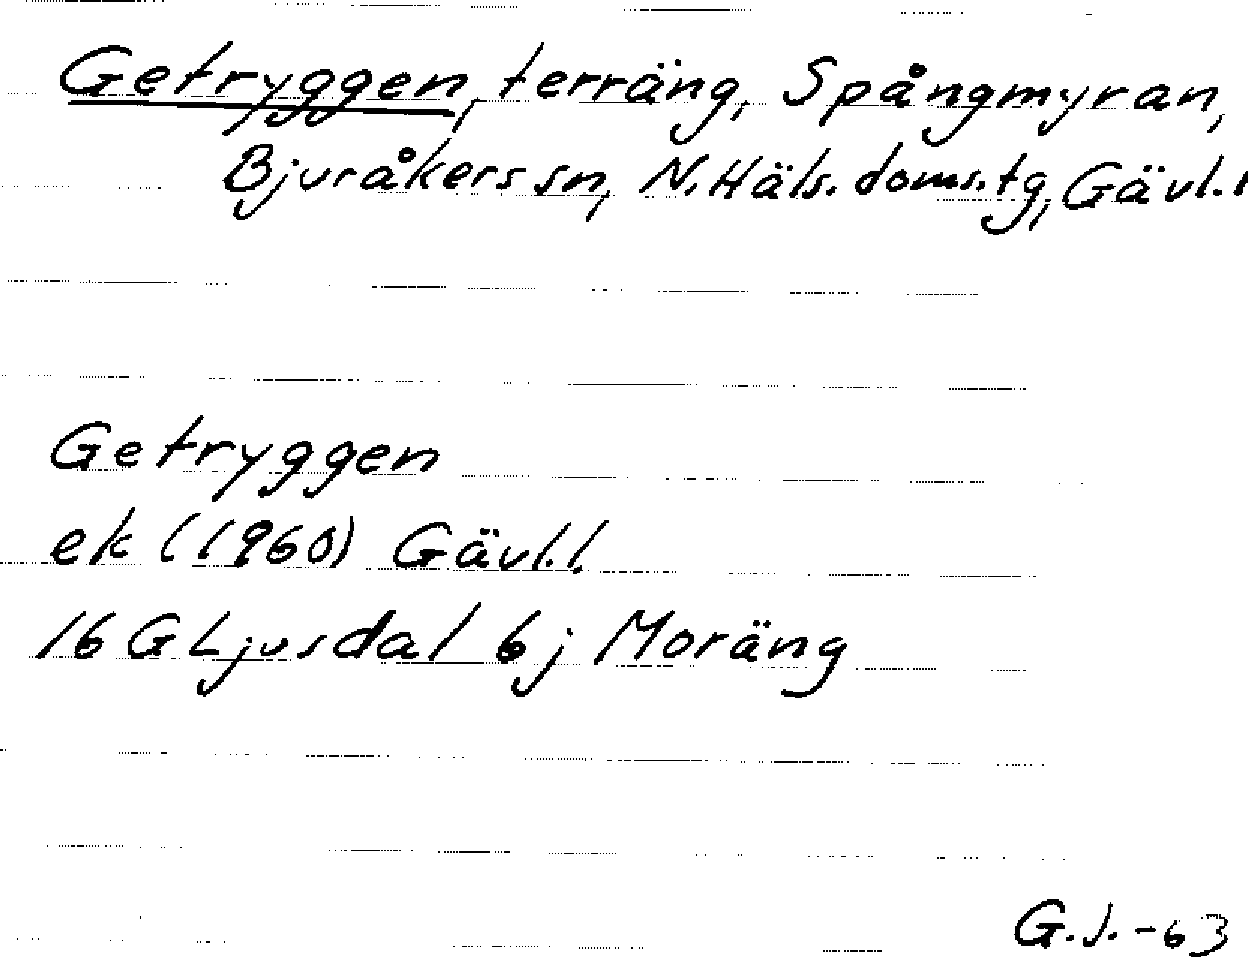 Getryggen, terräng, Spångmyran,
Bjuråkers sn, N. Häls. doms.tg, Gävl.l
Getryggen
ek (1960) Gävl.l.
16 G Ljusdal 6j Moräng
G.J.-63